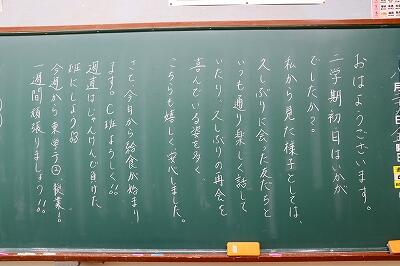 おはようございます。
二学期初日はいかが
でしたか？
私から見た様子としては、
久しぶりに会った友だちと
いつも通り楽しく話して
いたり、久しぶりの再会を
喜んでいる姿も多く、
こちらも嬉しく安心しました。
さて、今日から給食が始まり
ます。C班よろしく!!
週直はじゃんけんで負けた
班にしよう
今週から東単ラ④授業!
一週間頑張りましょう!!